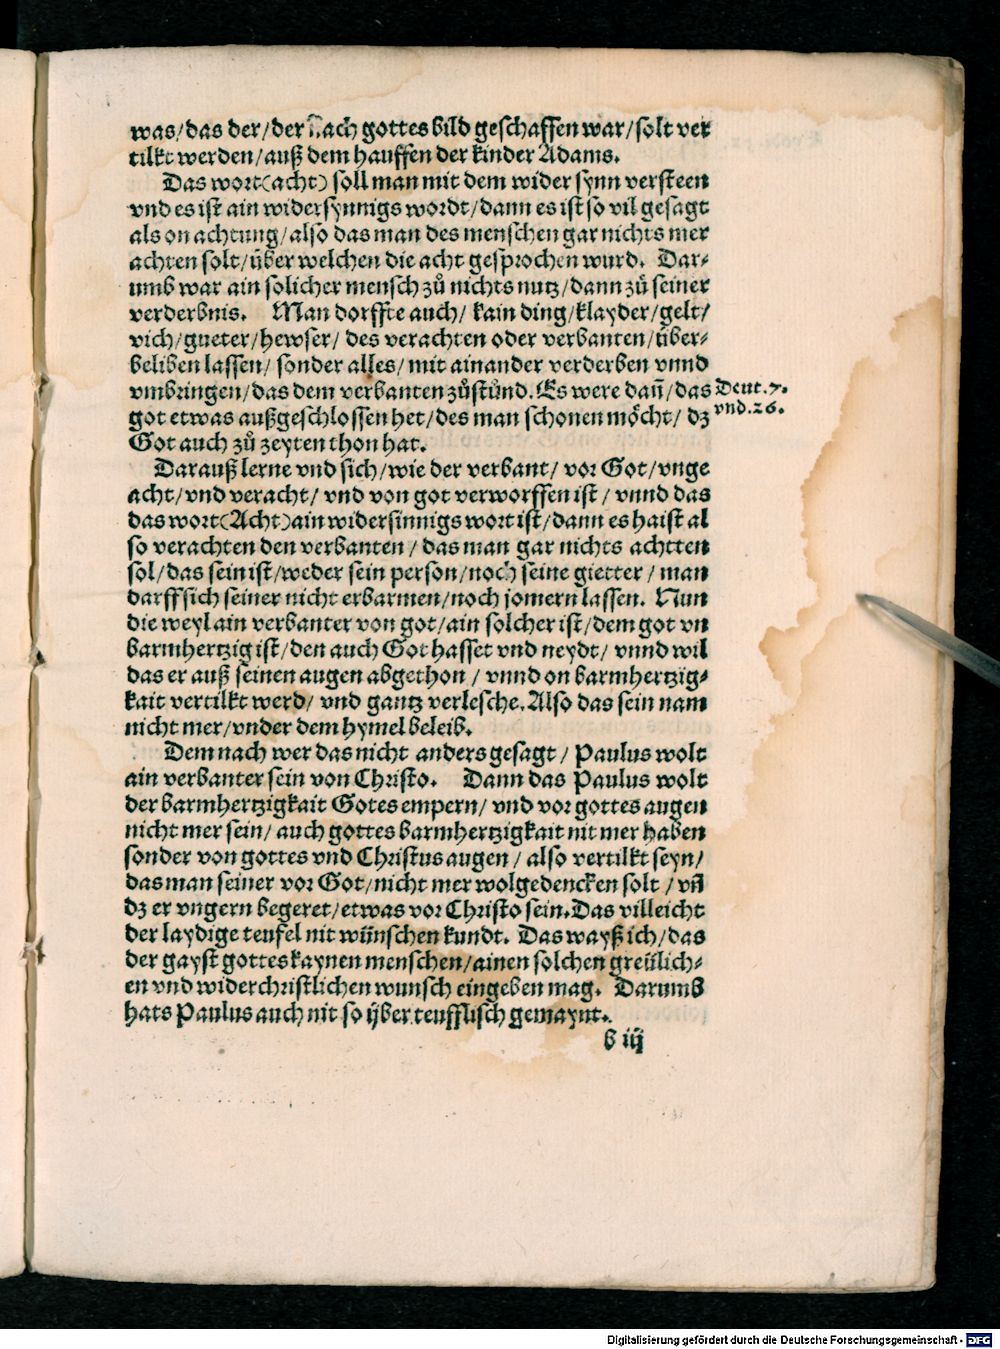 was/das der/der nach gottes bild geschaffen war/solt ver
tilkt werden/auß dem hauffen der kinder Adams.
Das wort(acht) soll man mit dem wider synn versteen
vnd es ist ain widersynnigs wordt/dann es ist so vil gesagt
als on achtung/also das man des menschen gar nichts mer
achten solt/über welchen die acht gesprochen wurd. Dar-
umb war ain solicher mensch zů nichts nutz/dann zů seiner
verderbnis. Man dorffte auch/ kain ding/klayder/gelt/
vich/gueter/hewser/ des verachten oder verbanten/über-
beliben lassen/ sonder alles/ mit ainander verderben vnnd
vmbringen/das dem verbanten zůstůnd. Es were dañ/das
Deut. 7.
got etwas außgeschlossen het/des man schonen möcht/ dz
vnd. 26.
Got auch zů zeyten thon hat.
Darauß lerne vnd sich/wie der verbant/ vor Got/vnge
acht/vnd veracht/ vnd von got verworffen ist/ vnnd das
das wort(Acht)ain widersinnigs wort ist/dann es haist al
so verachten den verbanten/ das man gar nichts achtten
sol/das sein ist/weder sein person/noch seine gietter/ man
darff sich seiner nicht erbarmen/noch jomern lassen. Nun
die weyl ain verbanter von got/ain solcher ist/dem got vn
barmhertzig ist/den auch Got hasset vnd neydt/ vnnd wil
das er auß seinen augen abgethon/ vnnd on barmhertzig-
kait vertilkt werd/ vnd gantz verlesche. Also das sein nam
nicht mer/vnder dem hymel beleib.
Dem nach wer das nicht anders gesagt/ Paulus wolt
ain verbanter sein von Christo. Dann das Paulus wolt
der barmhertzigkait Gotes empern/ vnd vor gottes augen
nicht mer sein/ auch gottes barmhertzigkait nit mer haben
sonder von gottes vnd Christus augen/ also vertilkt seyn/
das man seiner vor Got/nicht mer wolgedencken solt/ vñ
dz er vngern begeret/etwas vor Christo sein. Das villeicht
der laydige teufel nit wünschen kundt. Das wayß ich/das
der gayst gottes kaynen menschen/ainen solchen greülich-
en vnd widerchristlichen wunsch eingeben mag. Darumb
hats Paulus auch nit so ÿber teufflisch gemaynt.
b iij
Digitalisierung gefördert durch die Deutsche Forschungsgemeinschaft - DFG